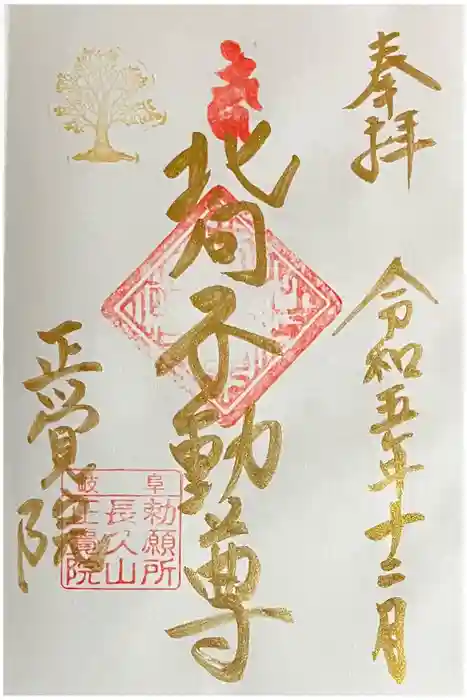 奉拝
令和五年十二月
北向不動尊
正覚院
岐阜
勅願所
長久山